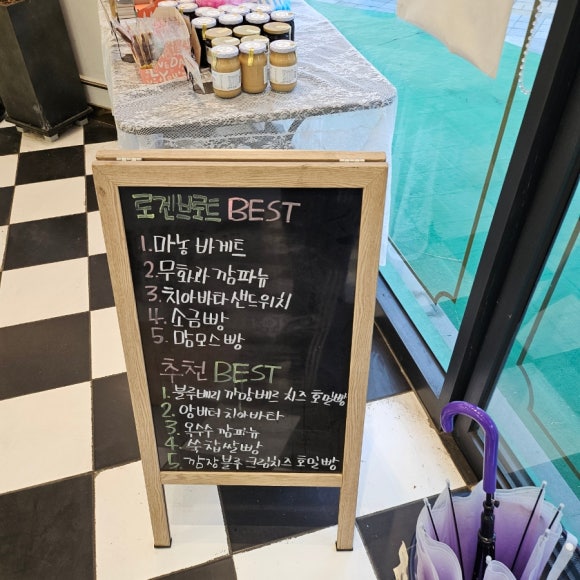 로겐브로트 BEST
1. 마늘 바게트
2. 무화과 깜파뉴
3. 치아바타 샌드위치
4. 소금빵
5. 맘모스빵
추천 BEST
1. 블루베리 까망베르 치즈 호밀빵
2. 앙버터 치아바타
3. 옥수수 깜파뉴
4. 쑥찹쌀빵
5. 깜장블루 크림치즈 호밀빵